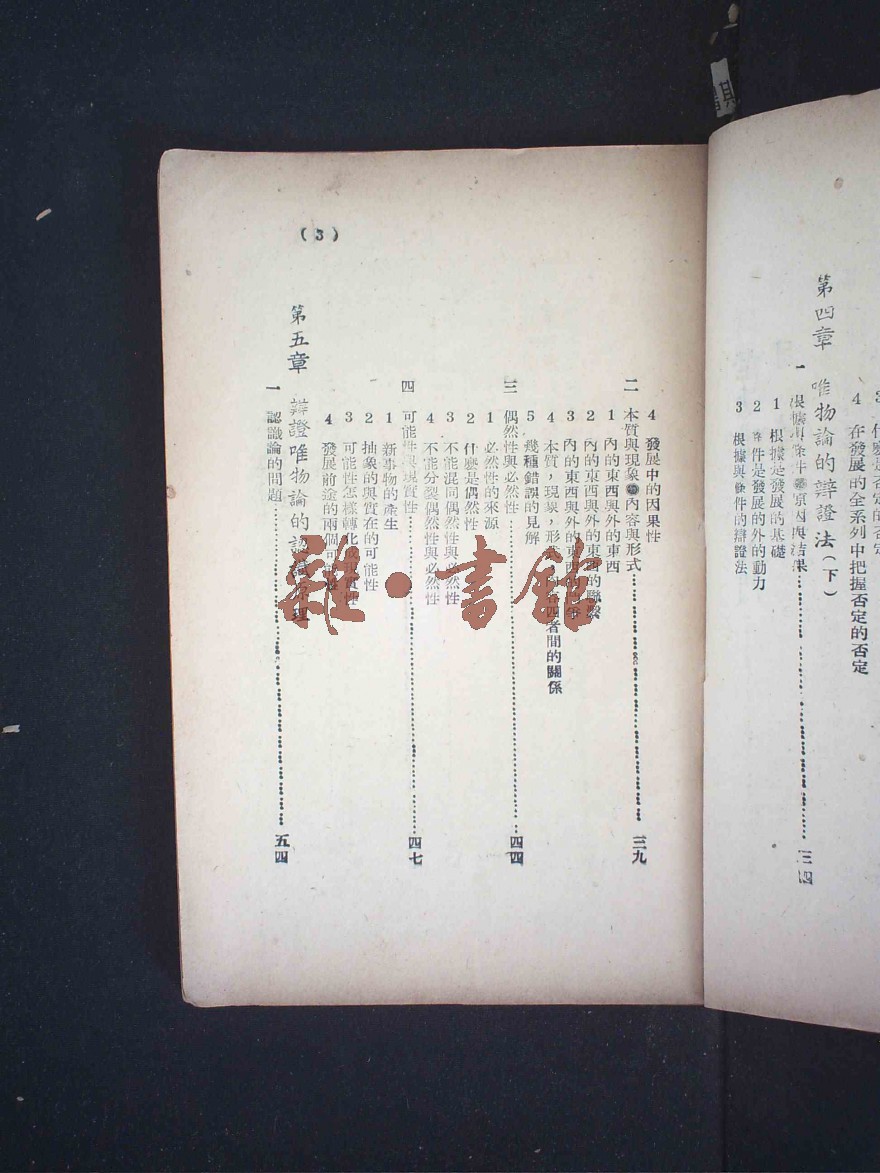 什麼是否定的否定
4 在發展的全系列中把握否定的否定
第四章 唯物論的辯證法(下)
一 根據與條件 原因與結果 三四
1 根據是發展的基礎
2 條件是發展的外的動力
3 根據與條件的辯證法
(3)
4 發展中的因果性
二 本質與現象 內容與形式 三九
1 內的東西與外的東西
2 內的東西與外的東西的聯繫
3 內的東西與外的東西的
4 本質,現象,形式,內容四者間的關係
5 幾種錯誤的見解
三 偶然性與必然性 四四
1 必然性的來源
2 什麼是偶然性
3 不能混同偶然性與必然性
4 不能分裂偶然性與必然性
四 可能性與現實性 四七
1 新事物的產生
2 抽象的與實在的可能性
3 可能性怎樣轉化成現實性
4 發展前途的兩個可能性
第五章 辯證唯物論的認識原理
一 認識論的問題 五四
雜·書館